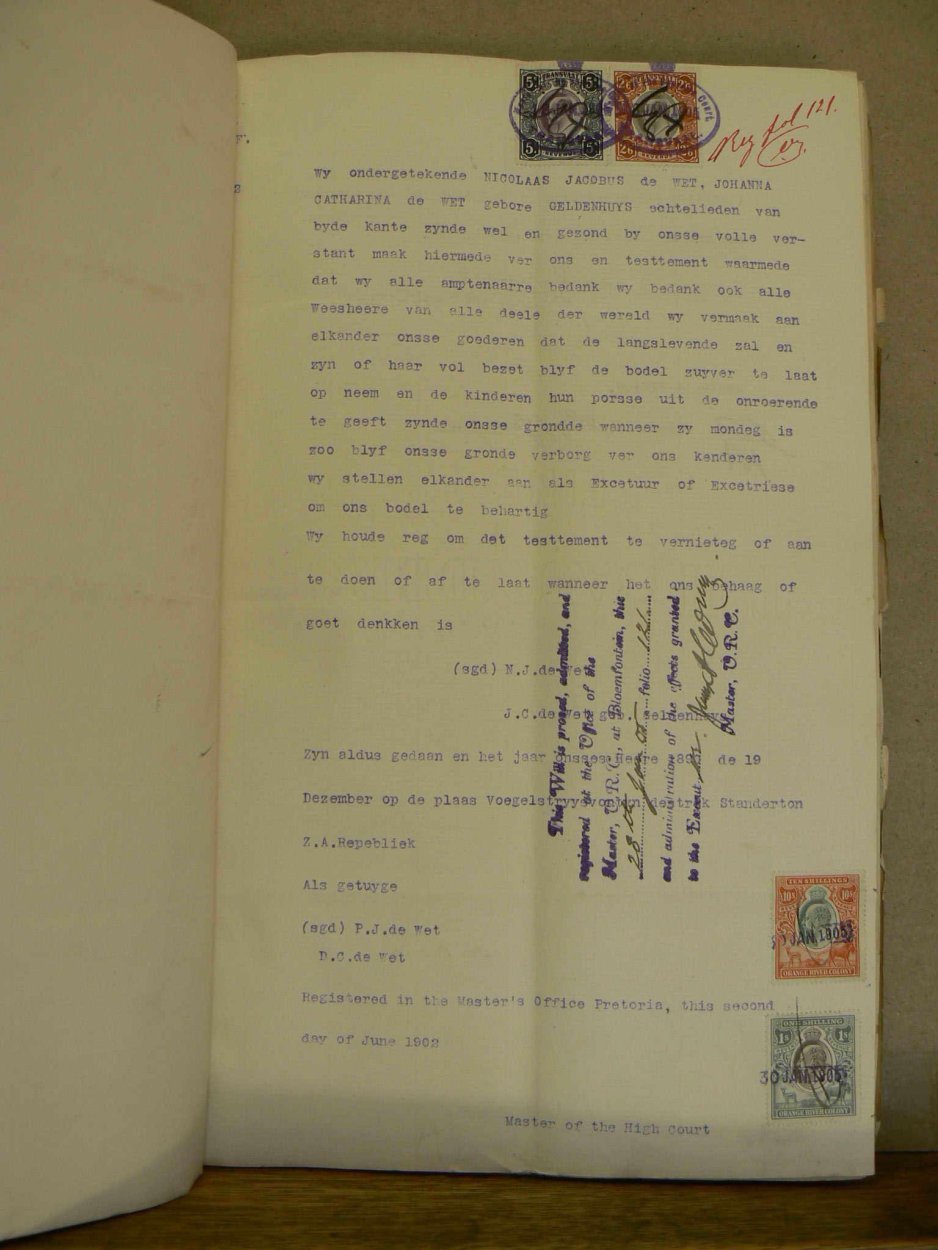 TRANSVAAL
5s 5s
5s REVENUE 5s
TRANSVAAL
2/6 2/6
2/6 REVENUE
Court
Reg fol 121.
F.
2
Wy ondergetekende NICOLAAS JACOBUS de WET, JOHANNA
CATHARINA de WET gebore GELDENHUYS echtelieden van
byde kante zynde wel en gezond by onsse volle ver-
stant maak hiermede ver ons en testtement waarmede
dat wy alle amptenaarre bedank wy bedank ook alle
Weesheere van alle deele der wereld wy vermaak aan
elkander onsse goederen dat de langslevende zal en
zyn of haar vol bezet blyf de bodel zuyver te laat
op neem en de kinderen hun porsse uit de onroerende
te geeft zynde onsse grondde wanneer zy mondeg is
zoo blyf onsse gronde verborg ver ons kenderen
wy stellen elkander aan als Excetuur of Excetriese
om ons bodel te behartig
Wy houde reg om det testtement te vernieteg of aan
te doen of af te laat wanneer het ons behaag of
goet denkken is
(sgd) N.J.de Wet
J.C.de Wet geb. Geldenhuys
Zyn aldus gedaan en het jaar onsses Heere de 19
Dezember op de plaas destrek Standerton
Z.A.Repebliek
Als getuyge
(sgd) P.J.de Wet
D.C.de Wet
Registered in the Master's Office Pretoria, this second
day of June 1902
Master of the High Court
This Will is proved, admitted, and
registered at the Office of the
Master, O.R.C., at Bloemfontein, this
28th Jan 05 folio 121
and administration of the effects granted
to the Execut
Master, O.R.C.
TEN SHILLINGS
10s 10s
JAN 1905
ORANGE RIVER COLONY
ONE SHILLING
1s 1s
30 JAN 1905
ORANGE RIVER COLONY